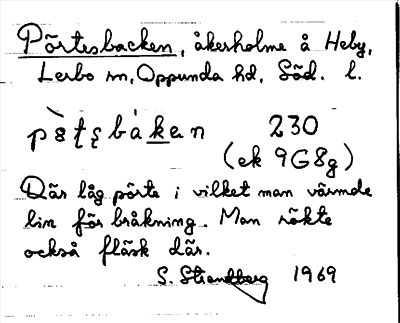 Pörtesbacken, åkerholme å Heby,
Lerbo sn, Oppunda hd, Söd. l.
pö̀ʈȩbàken 230
(ek 9G8g)
Där låg pörte i vilket man värmde
lin för bråkning. Man rökte
också fläsk där.
S. Strandberg 1969